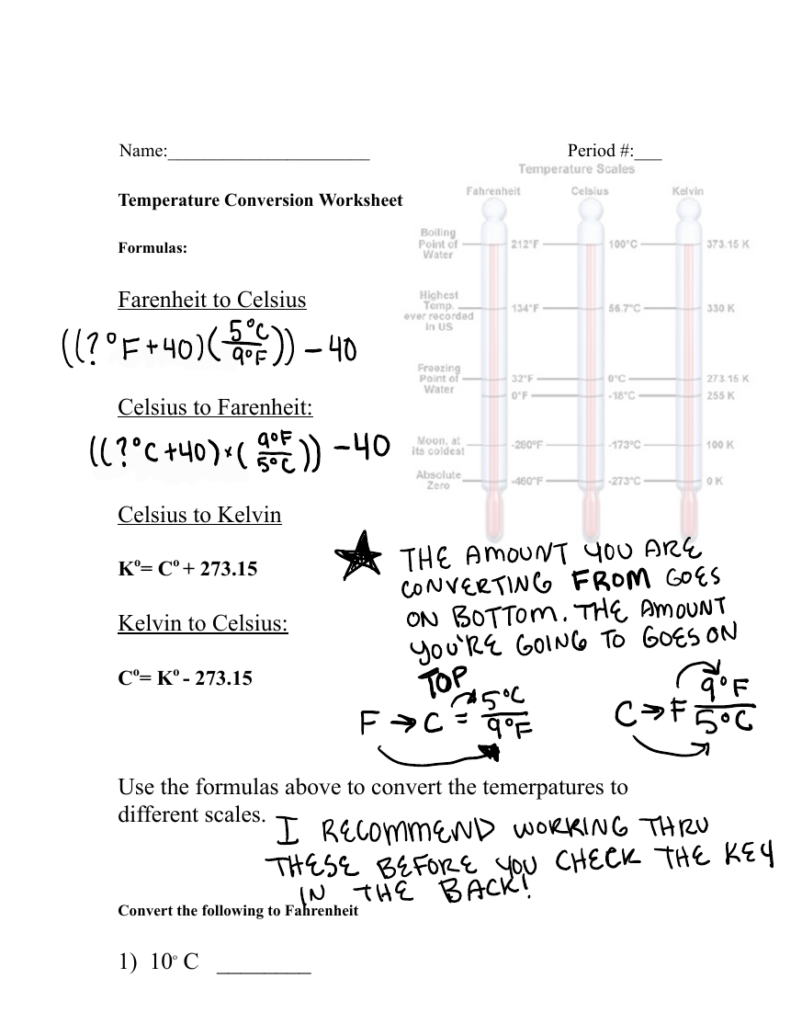 Name:______________________ Period #:___
Temperature Scales
Temperature Conversion Worksheet
Fahrenheit Celsius Kelvin
Formulas:
Boiling
Point of
Water
212°F 100°C 373.15 K
Farenheit to Celsius
Highest
Temp.
ever recorded
in US
134°F 56.7°C 330 K
((?°F+40)(5°C/9°F))-40
Freezing
Point of
Water
32°F 0°C 273.15 K
0°F -18°C 255 K
Celsius to Farenheit:
((?°C+40)*(9°F/5°C))-40
Moon, at
its coldest
-280°F -173°C 100 K
Absolute
Zero
-460°F -273°C 0 K
Celsius to Kelvin
K°= C° + 273.15
Kelvin to Celsius:
C°= K° - 273.15
★ THE AMOUNT YOU ARE
CONVERTING FROM GOES
ON BOTTOM. THE AMOUNT
YOU'RE GOING TO GOES ON
TOP
F → C = 5°C/9°F
C → F 9°F/5°C
Use the formulas above to convert the temerpatures to
different scales.
I RECOMMEND WORKING THRU
THESE BEFORE YOU CHECK THE KEY
IN THE BACK!
Convert the following to Fahrenheit
1) 10° C ________